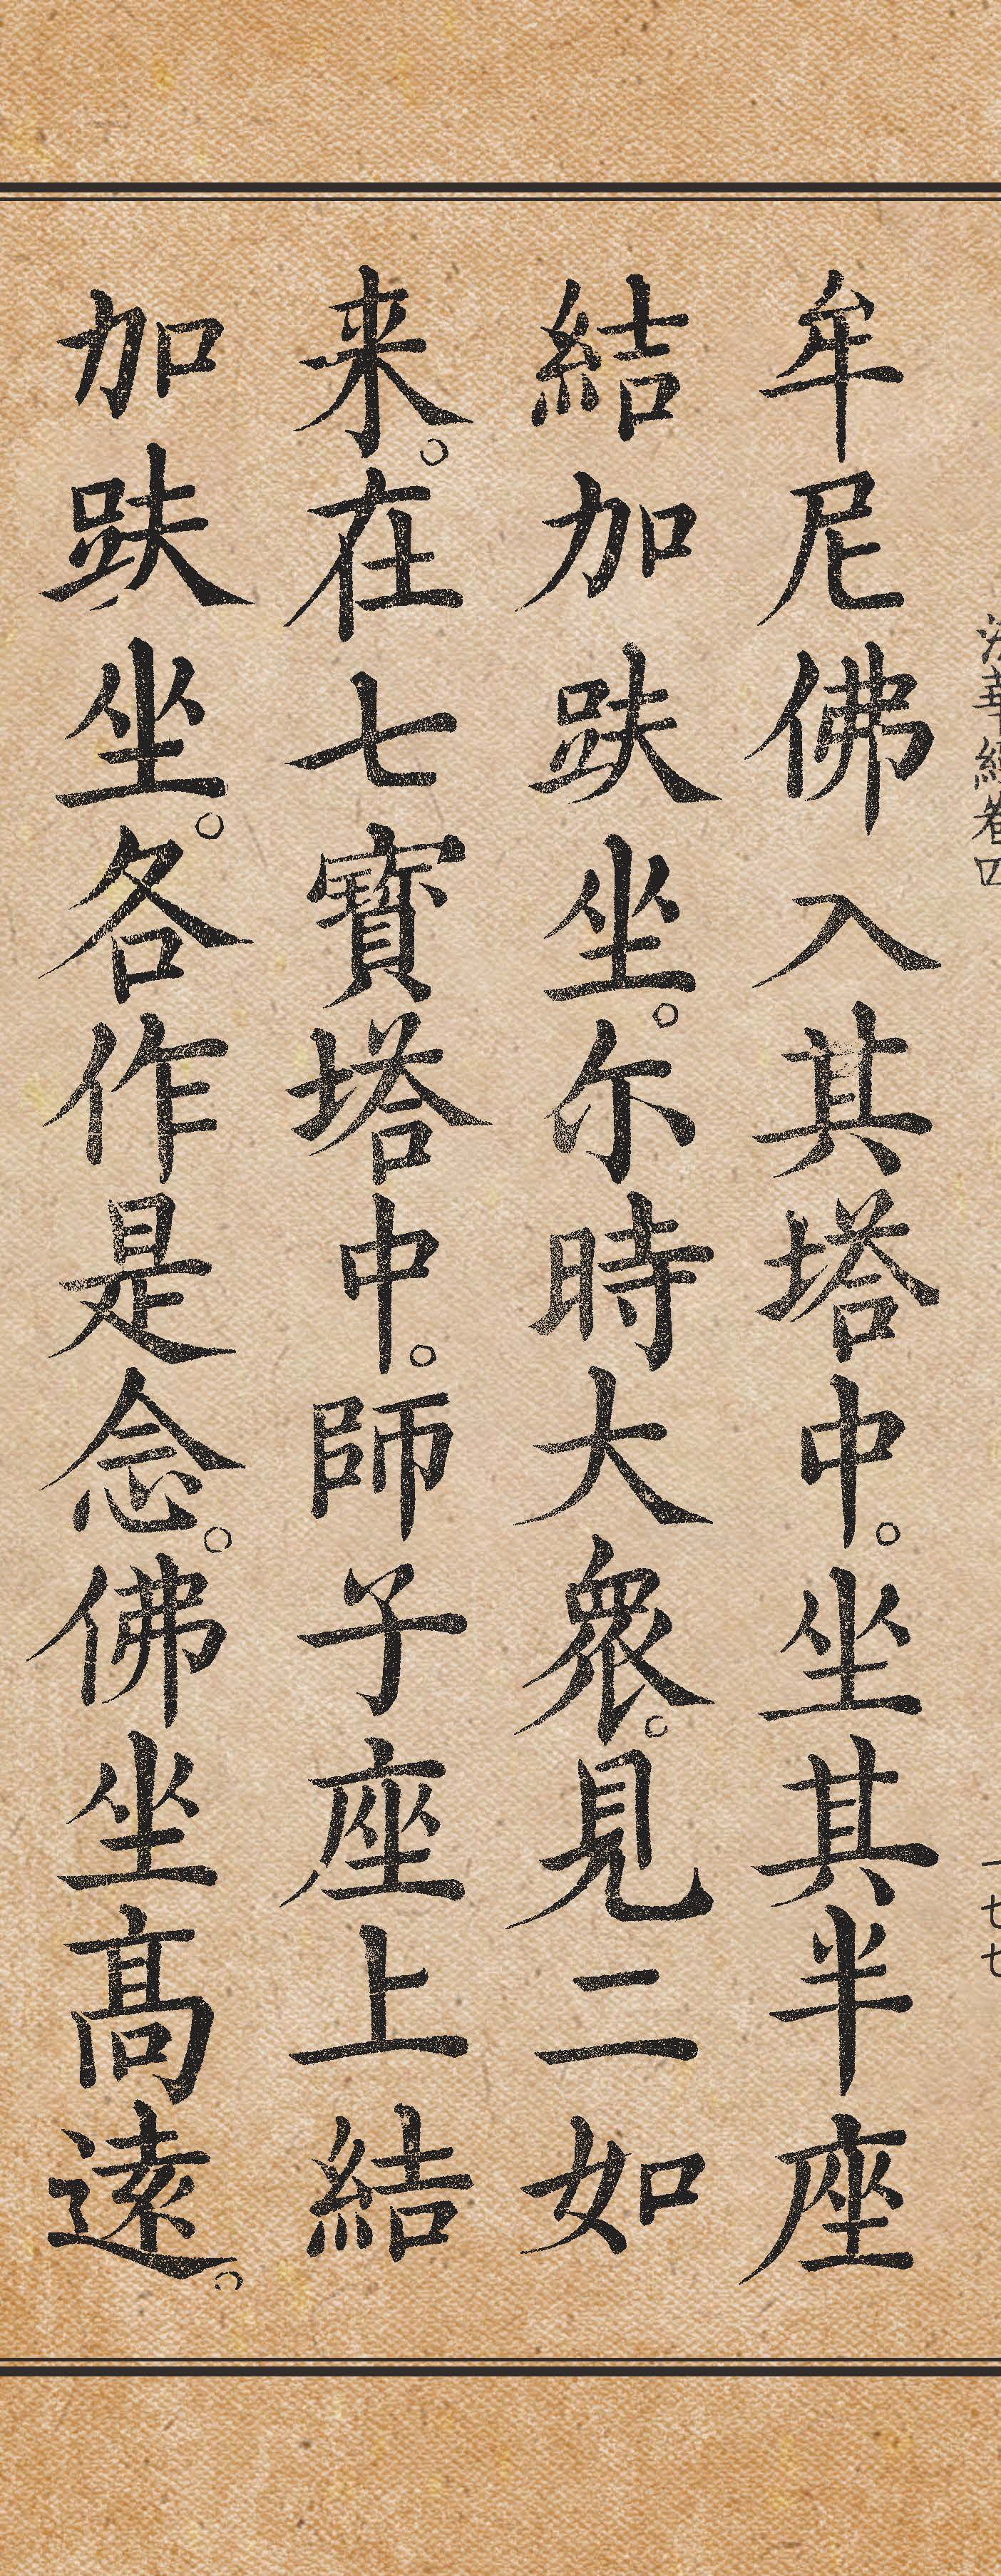 法華經卷四
一七七
牟尼佛入其塔中。坐其半座
結加趺坐。尔時大衆。見二如
来。在七寶塔中。師子座上結
加趺坐。各作是念。佛坐髙遠。